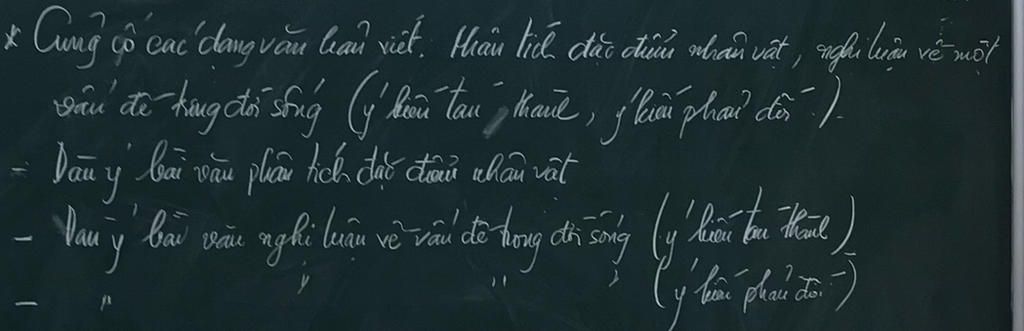 * Củng cố các dạng văn bản viết. Phân tích đặc điểm nhân vật, nghị luận về một
vấn đề trong đời sống (ý kiến tán thành, ý kiến phản đối).
- Dàn ý bài văn phân tích đặc điểm nhân vật
- Dàn ý bài văn nghị luận về vấn đề trong đời sống (ý kiến tán thành)
- " " " " (ý kiến phản đối)